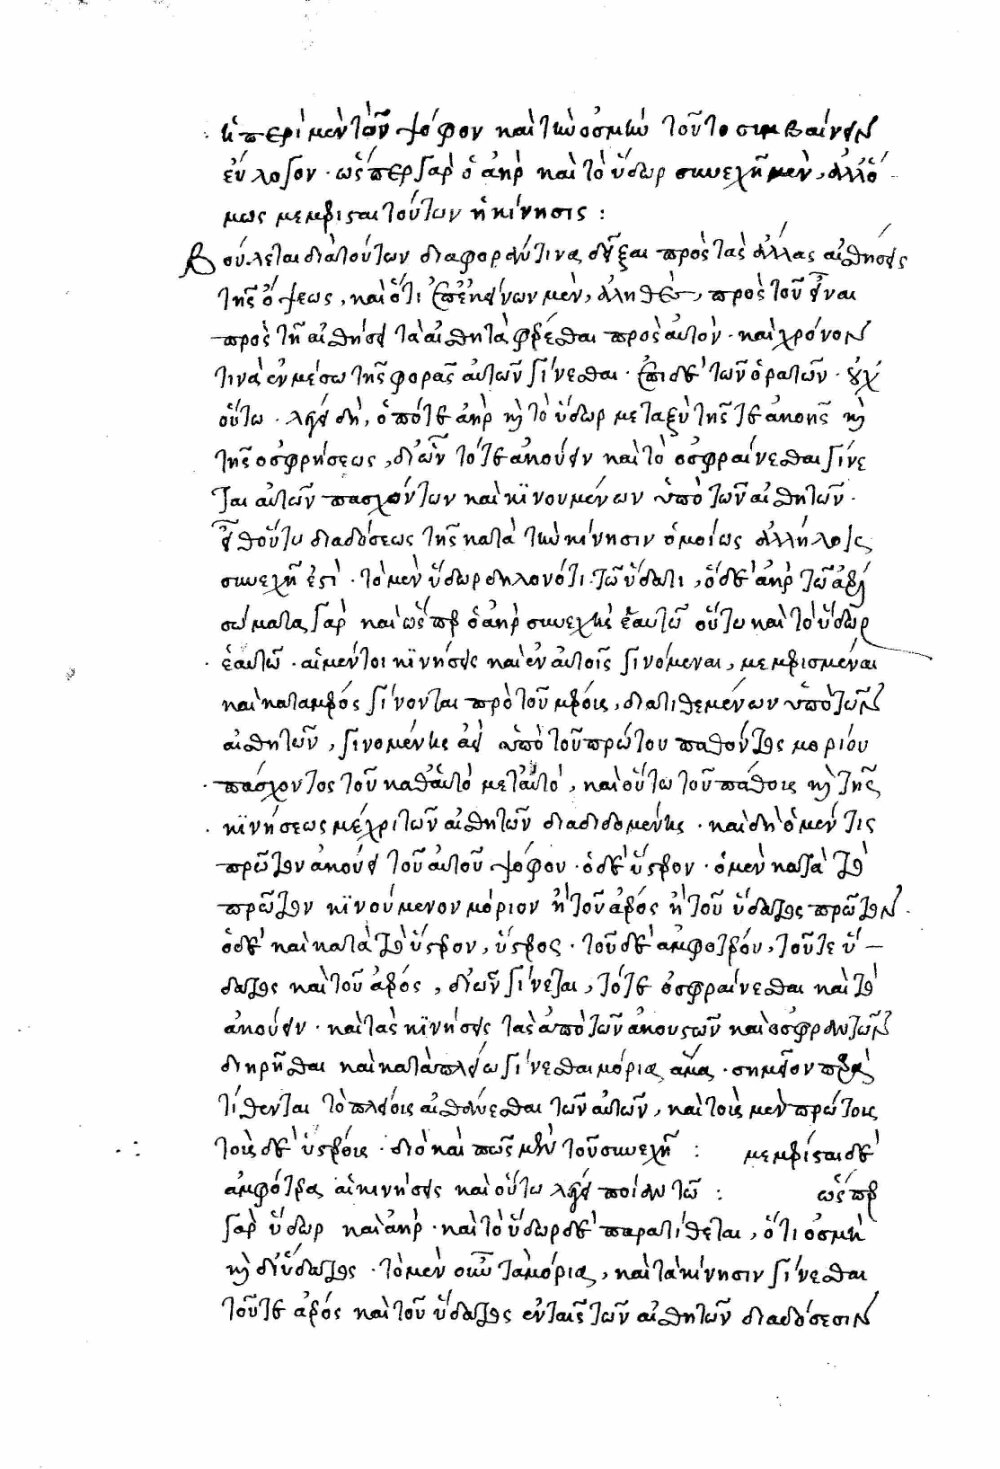 ἢ περὶ μὲν τὸν ψόφον καὶ τὴν ὀσμὴν τοῦτο συμβαίνειν
εὔλογον · ὥσπερ γὰρ ὁ ἀὴρ καὶ τὸ ὕδωρ συνεχῆ μὲν, ἀλλ' ὅ-
μως μεμέρισται τούτων ἡ κίνησις :
Βούλεται διὰ τούτων διαφοράν τινα δεῖξαι πρὸς τὰς ἄλλας αἰσθήσεις
τῆς ὄψεως, καὶ ὅτι ἐπ' ἐκείνων μὲν, ἀληθὲς, πρὸς τοῦ εἶναι
πρὸς τῇ αἰσθήσει τὰ αἰσθητὰ φέρεσθαι πρὸς αὐτὸν · καὶ χρόνον
τινὰ ἐν μέσω τῆς φορᾶς αὐτῶν γίνεσθαι · ἐπὶ δὲ τῶν ὁρατῶν · οὐχ'
οὕτω · λέγει δὴ, ὁπότε ἀὴρ καὶ τὸ ὕδωρ μεταξὺ τῆς τε ἀκοῆς καὶ
τῆς ὀσφρήσεως, δι' ὧν τό τε ἀκούειν καὶ τὸ ὀσφραίνεσθαι γίνε
ται αὐτῶν πασχόντων καὶ κϊνουμένων ὑπὸ τῶν αἰσθητῶν ·
διαδόσεως τῆς κατὰ τὴν κίνησιν ὁμοίως ἀλλήλοις
συνεχῆ ἐστὶ · τὸ μὲν ὕδωρ δηλονότι τῶ ὕδατι, ὁ δὲ ἀὴρ τῶ ἀέρι
σώματα γὰρ καὶ ὥσπερ ὁ ἀὴρ συνεχὴς ἑαυτῶ οὕτω καὶ τὸ ὕδωρ
ἑαυτῶ · αἱ μέντοι κϊνήσεις καὶ ἐν αὐτοῖς γινόμεναι, μεμερισμέναι
καὶ κατὰ μέρος γίνονται πρὸ τοῦ μέρους, διατιθεμένων ὑπὸ τῶν
αἰσθητῶν, γινομένης ἀεὶ ὑπὸ τοῦ πρώτου παθόντος μορίου
πάσχοντος τοῦ καθ' αὑτὸ μετ' αὐτὸ, καὶ οὕτω τοῦ πάθους καὶ τῆς
κϊνήσεως μέχρι τῶν αἰσθητῶν διαδιδομένης · καὶ δὴ ὁ μέν τις
πρῶτον ἀκούει τοῦ αὐτοῦ ψόφου · ὁ δὲ ὕστερον · ὁ μὲν κατὰ τὸ
πρῶτον κϊνούμενον μόριον ἢ τοῦ ἀέρος ἢ τοῦ ὕδατος πρῶτον ·
ὁ δὲ καὶ κατὰ τὸ ὕστερον, ὕστερος · τοῦ δὲ ἀμφοτέρου, τοῦ τε ὕ-
δατος καὶ τοῦ ἀέρος, δι' ὧν γίνεται, τό τε ὀσφραίνεσθαι καὶ τὸ
ἀκούειν · καὶ τὰς κϊνήσεις τὰς ἀπὸ τῶν ἀκουστῶν καὶ ὀσφραντῶν
διηρῆσθαι καὶ κατὰ πλείω γίνεσθαι μόρια ἅμα · σημεῖον παρα
τίθενται τὸ πλείους αἰσθάνεσθαι τῶν αὐτῶν, καὶ τοὺς μὲν πρώτους
τοὺς δὲ ὑστέρους · διὸ καὶ πῶς μὲν τοῦ συνεχῆ : μεμέρισται δὲ
ἀμφότερα αἱ κινήσεις καὶ οὕτω λέγει ποίαν τῶ : ὥσπερ
γὰρ ὕδωρ καὶ ἀὴρ · καὶ τὸ ὕδωρ δὲ παρατίθεται, ὅτι ὀσμὴ
καὶ δι' ὕδατος · τὸ μὲν οὖν τὰ μόρια, καὶ τὰ κίνησιν γίνεσθαι
τοῦ τε ἀέρος καὶ τοῦ ὕδατος ἐν ταῖς τῶν αἰσθητῶν διαδόσεσιν